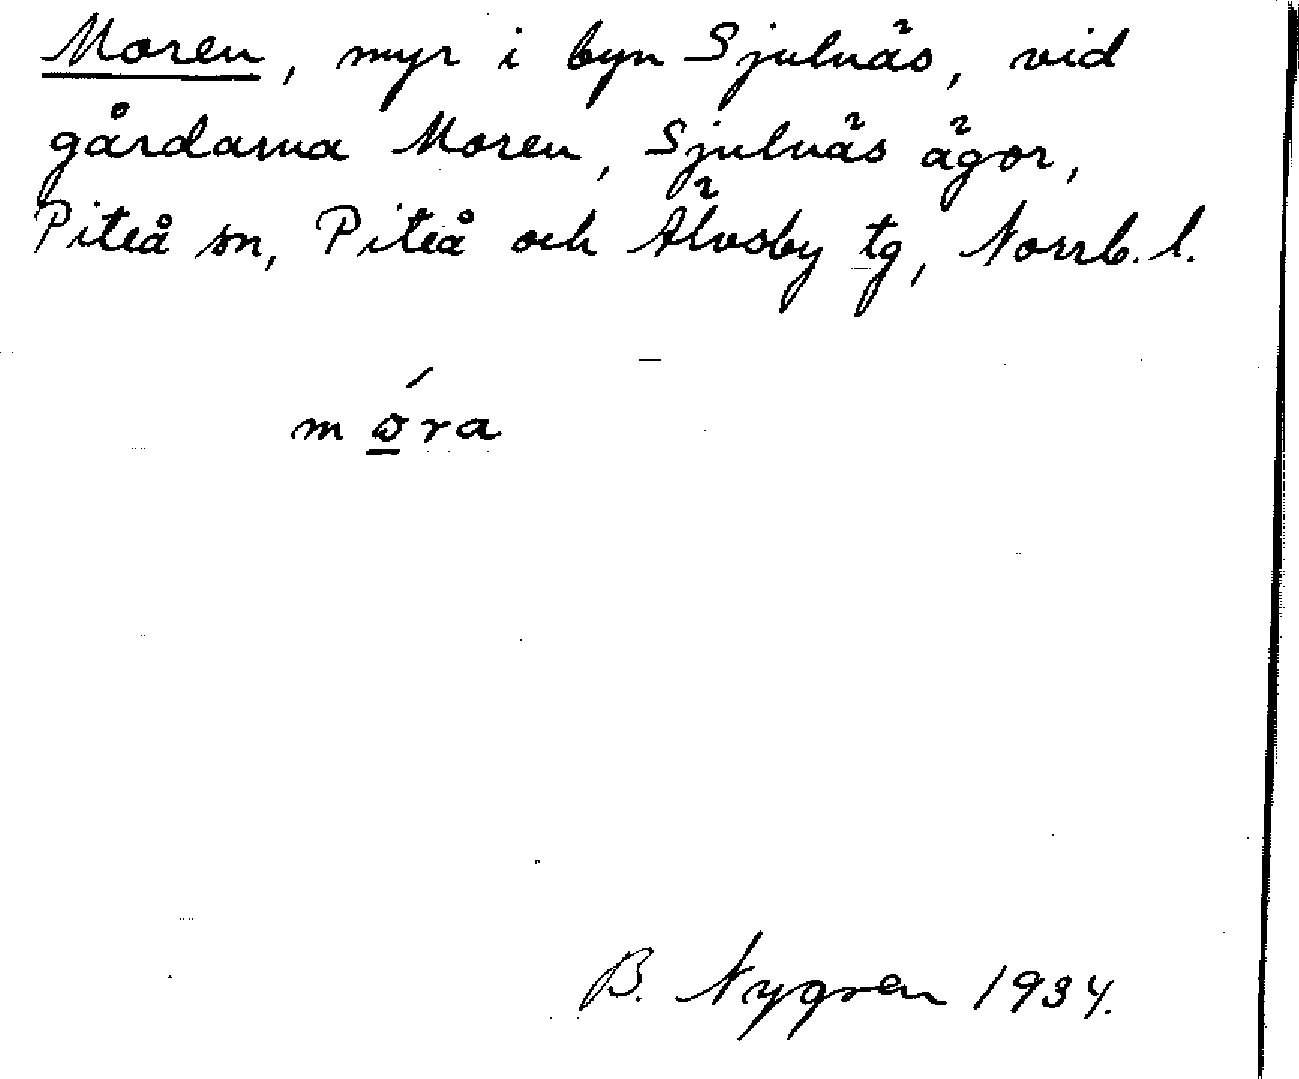 Moren, myr i byn Sjulnäs, vid
gårdarna Moren, Sjulnäs ägor,
Piteå sn, Piteå och Älvsby tg, Norrb. l.
B. Nygren 1934.